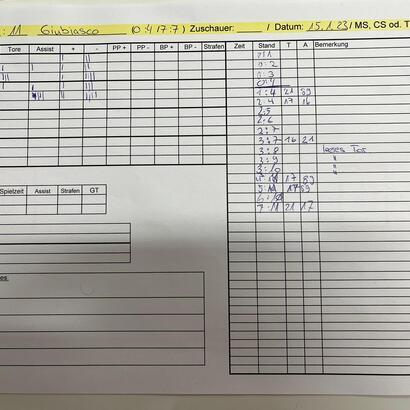 : 11 Giubiasco (0:4 17:7) Zuschauer: / Datum: 15.1.23 / MS, CS od. T
Tore Assist + - PP + PP - BP + BP - Strafen Zeit Stand T A Bemerkung
0:2
0:3
0:4
1:4 21 89
2:4 17 16
2:5
2:6
2:7
3:7 16 21
3:8 leeres Tor
3:9 "
3:10 "
17 89
17 89
21 17
Spielzeit Assist Strafen GT
es: